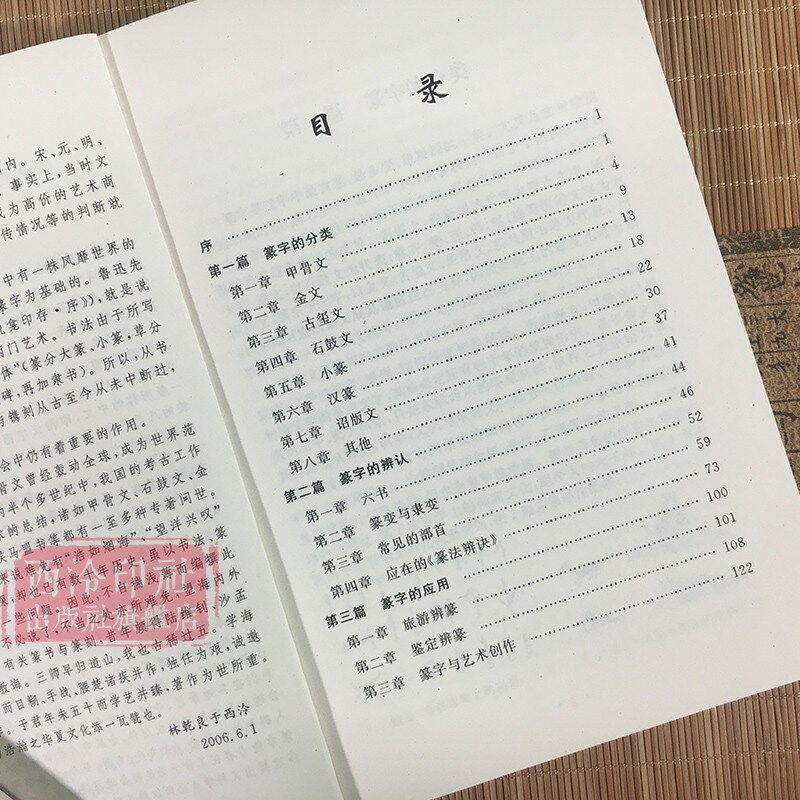 内。宋、元、明、
事实上，当时文
成为高价的艺术商
传情况等的判断就
中有一株风靡世界的
篆字为基础的。鲁迅先
龛印存·序》)，就是说
两门艺术。书法由于所写
体”(篆分大篆、小篆，草分
碑，再加隶书)。所以，从书
与镌刻从古至今从未中断过，
会中仍有着重要的作用。
骨文曾经轰动全球，成为世界范
半个多世纪中，我国的考古工作
的总结，诸如甲骨文、石鼓文、金
马盟书等都有一至多种专著问世。
有“浩如烟海”、“望洋兴叹”
却也已有数十年历史；虽以书法、篆
一些问题。因此，不自揣浅陋而编撰此
必说了，不当之处亦所难免，望海内外
有关篆书与篆刻，昔年颇得陆维钊、沙孟
教诲。三师早归道山，我也古稀过五。学海
而目糊、手战、腰楚诸疾并作，独任为艰，诚邀
。于君年未五十而学艺并臻，著作为世所重。
浩瀚之华夏文化添一瓦甓也。
林乾良于西泠
2006.6.1
西泠印社
出版社旗舰店
目 录
序 1
第一篇 篆字的分类 1
第一章 甲骨文 4
第二章 金文 9
第三章 古玺文 13
第四章 石鼓文 18
第五章 小篆 22
第六章 汉篆 30
第七章 诏版文 37
第八章 其他 41
第二篇 篆字的辨认 44
第一章 六书 46
第二章 篆变与隶变 52
第三章 常见的部首 59
第四章 应在的《篆法辨诀》 73
第三篇 篆字的应用 100
第一章 旅游辨篆 101
第二章 鉴定辨篆 108
第三章 篆字与艺术创作 122